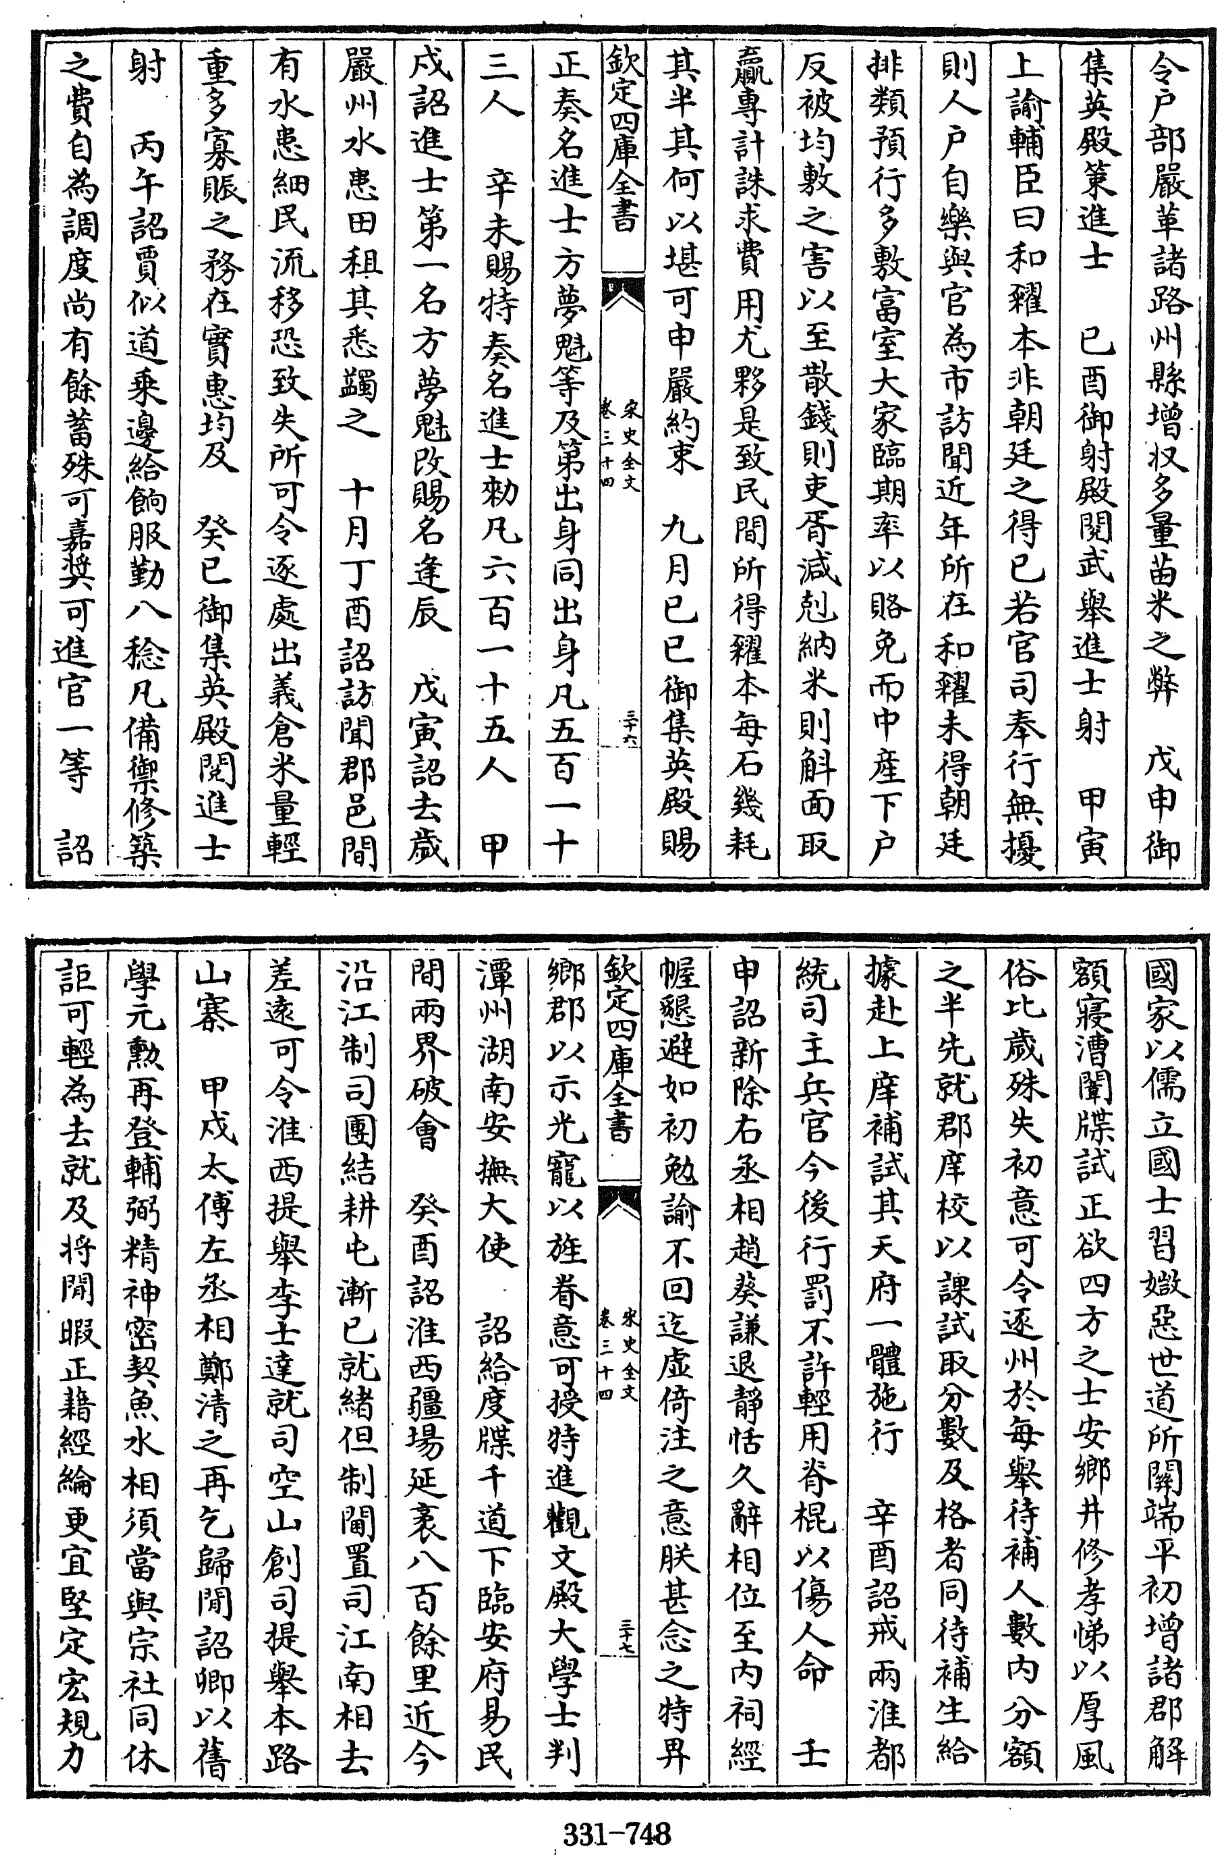 令戶部嚴革諸路州縣增收多量苗米之弊　戊申御
集英殿策進士　己酉御射殿閱武舉進士射　甲寅
上諭輔臣曰和糴本非朝廷之得已若官司奉行無擾
則人戶自樂與官為市訪聞近年所在和糴未得朝廷
排類預行多敷富室大家臨期率以賂免而中產下戶
反被均敷之害以至散錢則吏胥減剋納米則斛面取
贏專計誅求費用尤夥是致民間所得糴本每石幾耗
其半其何以堪可申嚴約束　九月己巳御集英殿賜
欽定四庫全書　宋史全文卷三十四　三十六
正奏名進士方夢魁等及第出身同出身凡五百一十
三人　辛未賜特奏名進士勑凡六百一十五人　甲
戌詔進士第一名方夢魁改賜名逢辰　戊寅詔去歲
嚴州水患田租其悉蠲之　十月丁酉詔訪聞郡邑間
有水患細民流移恐致失所可令逐處出義倉米量輕
重多寡賑之務在實惠均及　癸巳御集英殿閱進士
射　丙午詔賈似道乘邊給餉服勤八稔凡備禦修築
之費自為調度尚有餘蓄殊可嘉奬可進官一等　詔
國家以儒立國士習媺惡世道所關端平初增諸郡解
額寢漕闈牒試正欲四方之士安鄉井修孝悌以厚風
俗比歲殊失初意可令逐州於每舉待補人數內分額
之半先就郡庠校以課試取分數及格者同待補生給
據赴上庠補試其天府一體施行　辛酉詔戒兩淮都
統司主兵官今後行罰不許輕用脊棍以傷人命　壬
申詔新除右丞相趙葵謙退靜恬久辭相位至內祠經
幄懇避如初勉諭不回迄虛倚注之意朕甚念之特畀
欽定四庫全書　宋史全文卷三十四　三十七
鄉郡以示光寵以旌眷意可授特進觀文殿大學士判
潭州湖南安撫大使　詔給度牒千道下臨安府易民
間兩界破會　癸酉詔淮西疆場延袤八百餘里近今
沿江制司團結耕屯漸已就緒但制閫置司江南相去
差遠可令淮西提舉李士達就司空山創司提舉本路
山寨　甲戌太傅左丞相鄭清之再乞歸閒詔卿以舊
學元勳再登輔弼精神密契魚水相須當與宗社同休
詎可輕為去就及將閒暇正藉經綸更宜堅定宏規力
331-748